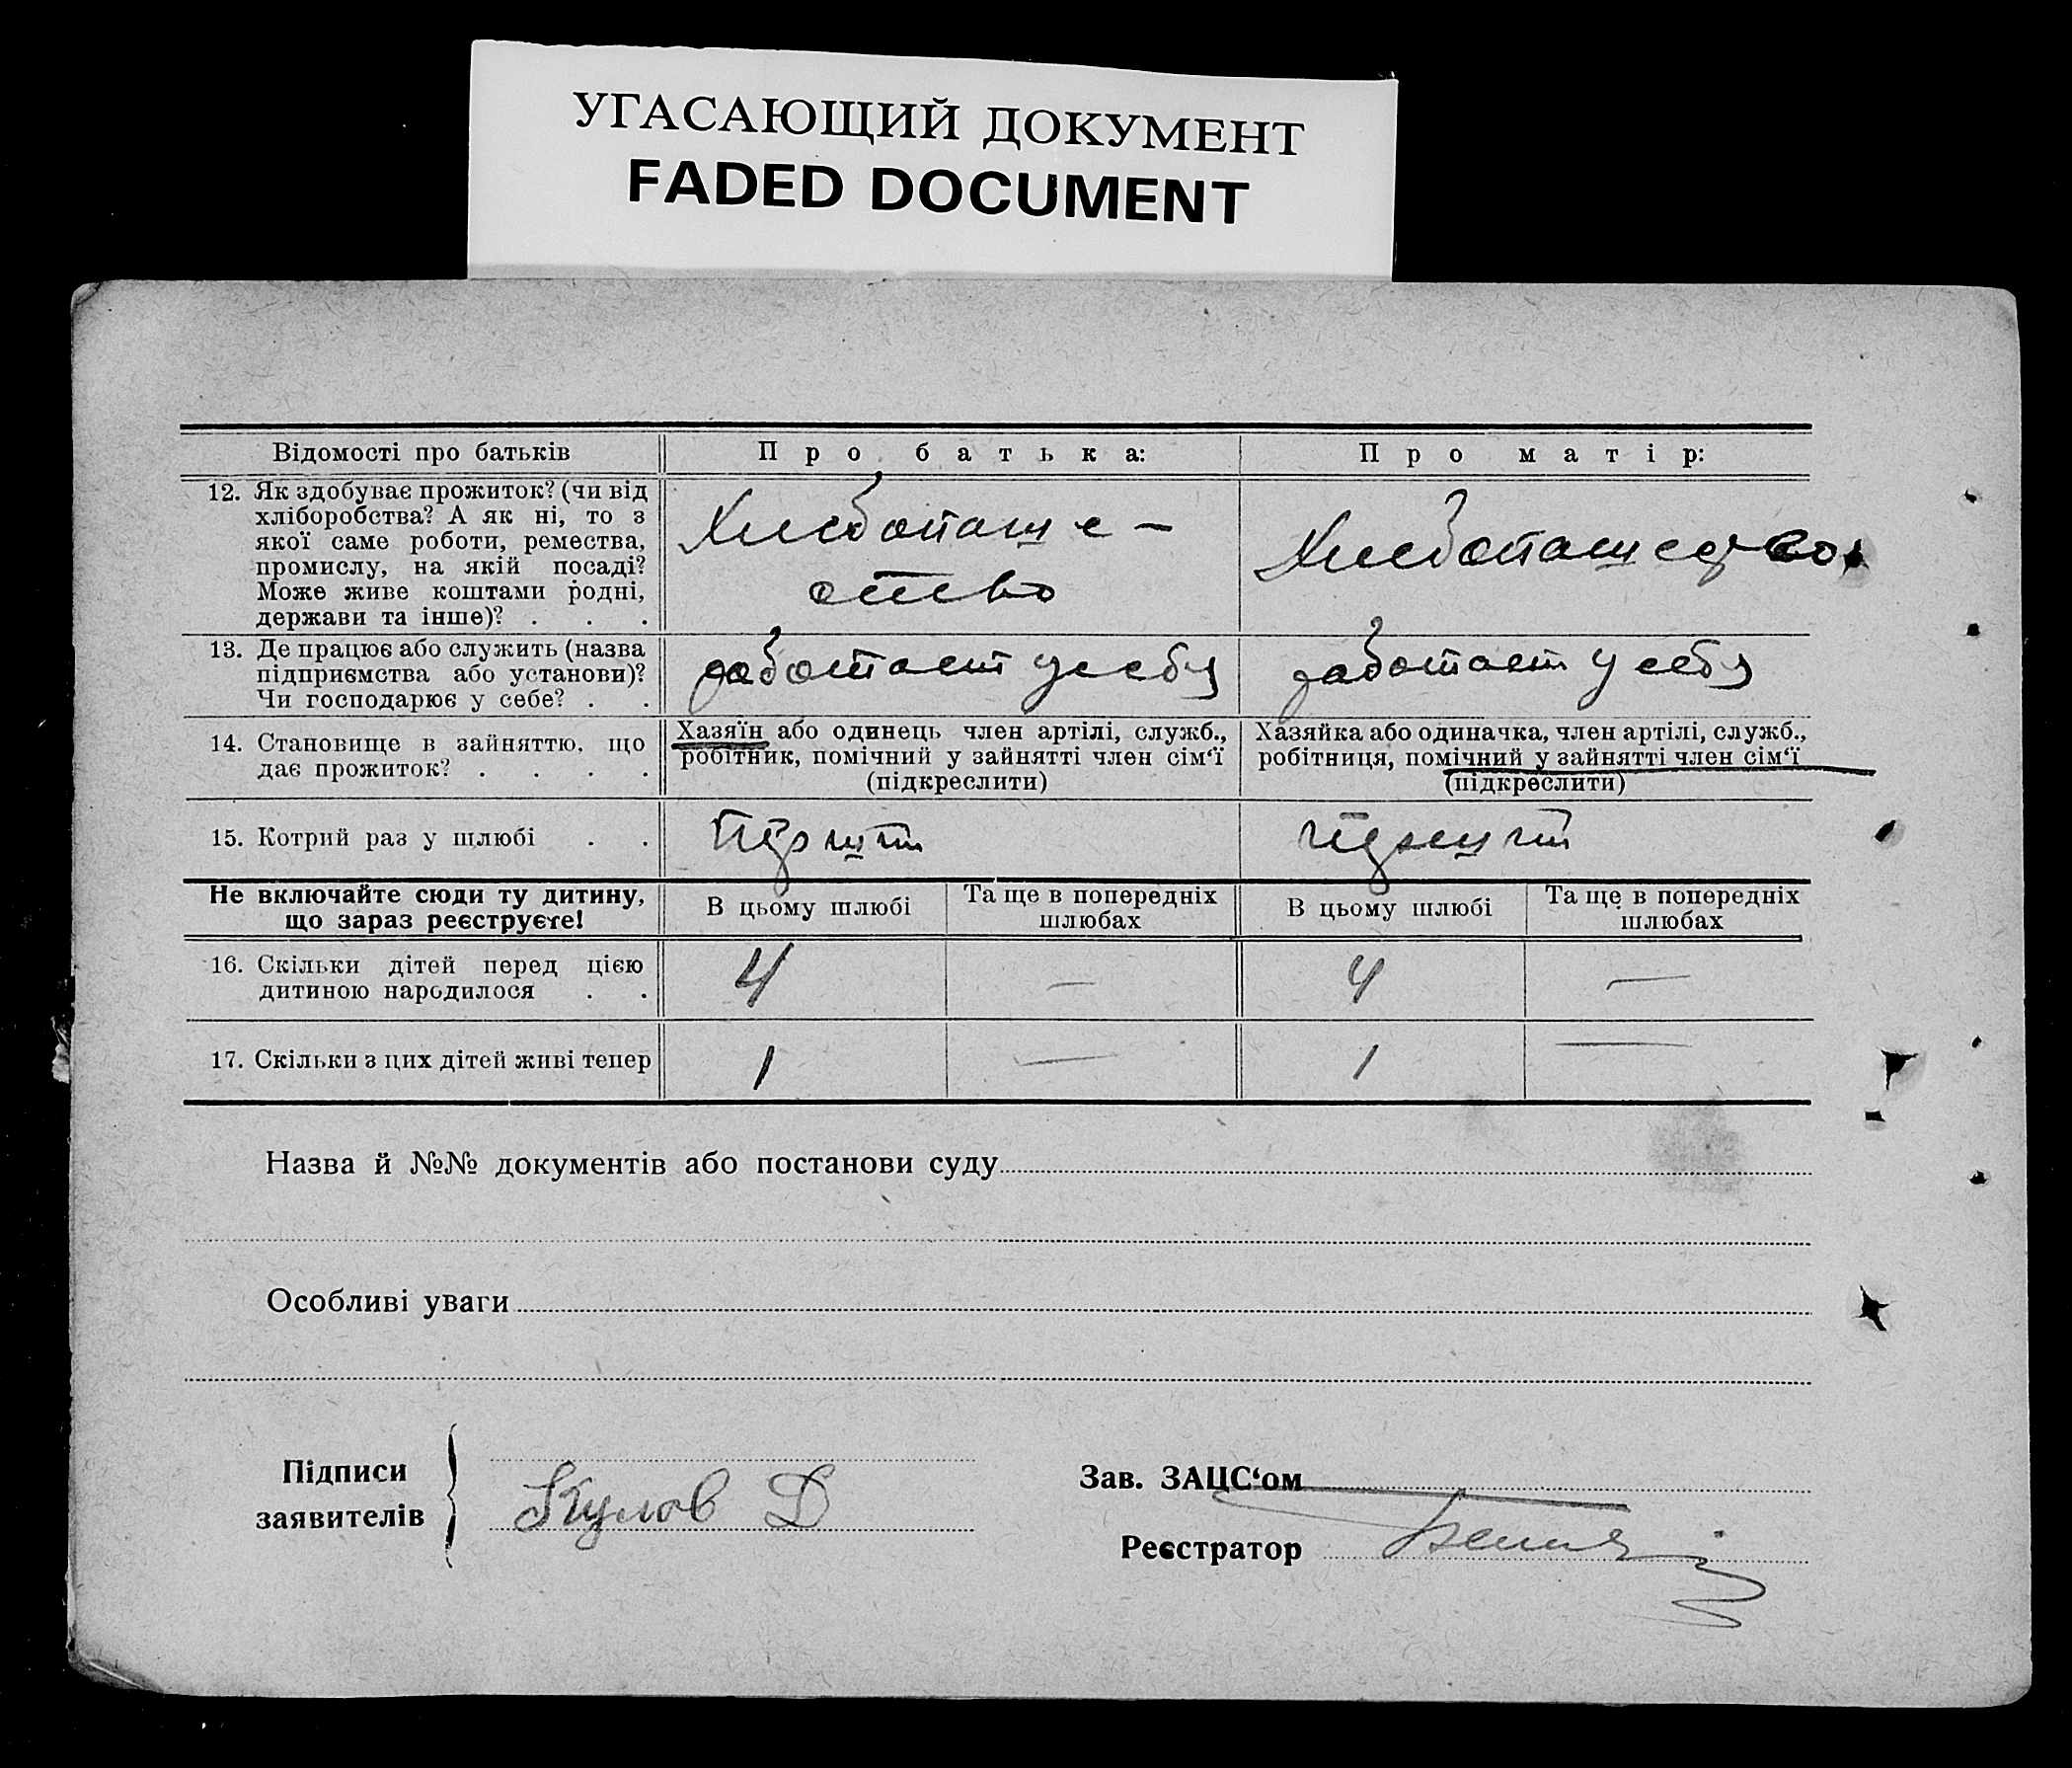 УГАСАЮЩИЙ ДОКУМЕНТ
FADED DOCUMENT
Відомості про батьків
Про батька:
Про матір:
12. Як здобуває прожиток? (чи від
хліборобства? А як ні, то з
якої саме роботи, ремества,
промислу, на якій посаді?
Може живе коштами родні,
держави та інше)? . . .
Хлебопаше-
ство
Хлебопашество
13. Де працює або служить (назва
підприємства або установи)?
Чи господарює у себе? . .
работает у себя
работает у себя
14. Становище в зайняттю, що
дає прожиток? . . . .
Хазяїн або одинець член артілі, служб.,
робітник, помічний у зайнятті член сім‘ї
(підкреслити)
Хазяйка або одиначка, член артілі, служб.,
робітниця, помічний у зайнятті член сім‘ї
(підкреслити)
15. Котрий раз у шлюбі . .
Не включайте сюди ту дитину,
що зараз реєструєте!
В цьому шлюбі
Та ще в попередніх
шлюбах
В цьому шлюбі
Та ще в попередніх
шлюбах
16. Скільки дітей перед цією
дитиною народилося . .
4
—
4
—
17. Скільки з цих дітей живі тепер
1
—
1
—
Назва й №№ документів або постанови суду
Особливі уваги
Підписи
заявителів
Кулов Д
Зав. ЗАЦС‘ом
Реєстратор